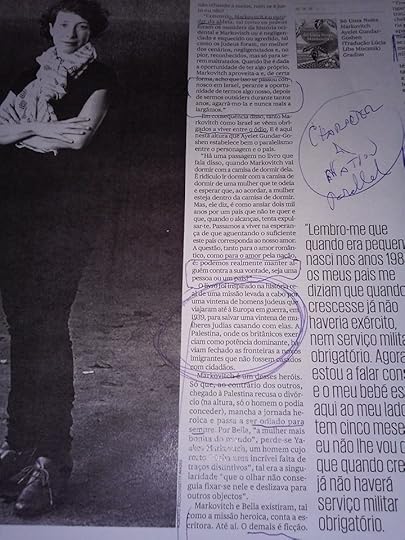 não olhando a meios, nem se é
justo ou não?
"Exatamente. Markovitch é ostraci-
zado na aldeia, tal como os judeus
foram os outsiders da história oci-
dental e Markovitch ou é negligen-
ciado e esquecido ou agredido, tal
como os judeus foram, no melhor
dos cenários, negligenciados e, no
pior, reconhecidos, mas só para se-
rem maltratados. Quando lhe é dada
a oportunidade de ter algo próprio,
Markovitch aproveita-a e, de certa
forma, acho que isso se passou con-
nosco em Israel, perante a oportuni-
dade de termos algo nosso, depois
de sermos outsiders durante tantos
anos, agarrá-mo-la e nunca mais a
largámos."
Em consequência disso, tanto
Markovitch como Israel se vêem obri-
gados a viver entre o ódio. E é aqui
nesta altura que Ayelet Gundar-Gos-
hen estabelece bem o paralelismo
entre o personagem e o país.
"Há uma passagem no livro que
fala disso, quando Markovitch vai
dormir com a camisa de dormir dela.
É ridículo ir dormir com a camisa de
dormir de uma mulher que te odeia
e esperar que, ao acordar, a mulher
esteja dentro da camisa de dormir.
Mas, ele diz, é como ansiar dois mil
anos por um país que não te quer e
que, quando o alcanças, tenta expul-
sar-te. Passamos a viver na esperan-
ça de que aguentando o suficiente
este país corresponda ao nosso amor.
A questão, tanto para o amor român-
tico, como para o amor pela nação,
é: podemos realmente manter al-
guém contra a sua vontade, seja uma
pessoa ou um país?"
O livro foi inspirado na história re-
al de uma missão levada a cabo por
uma vintena de homens judeus que
viajaram até à Europa em guerra, em
1939, para salvar uma vintena de mu-
lheres judias casando com elas. A
Palestina, onde os britânicos exer-
ciam como potência dominante, ha-
viam fechado as fronteiras a novos
imigrantes que não fossem casados
com cidadãos.
Markovitch é um desses heróis.
Só que, ao contrário dos outros,
chegado à Palestina recusa o divór-
cio (na altura, só o homem o podia
conceder), mancha a jornada he-
roica e passa a ser odiado para
sempre. Por Bella, "a mulher mais
bonita do mundo", perde-se Ya-
akov Markovitch, um homem cujo
rosto "tinha uma incrível falta de
traços distintivos", tal era a singula-
ridade "que o olhar não conse-
guia fixar-se nele e deslizava para
outros objectos".
Markovitch e Bella existiram, tal
como a missão heroica, conta a es-
critora. Até aí. O demais é ficção.
Só Uma Noite,
Markovitch
Ayelet Gundar-
Goshen
(Tradução Lúcia
Liba Mucznik)
Gradiva
CHARACTER
A
NATION
parallel
"Lembro-me que
quando era pequena,
nasci nos anos 198
os meus pais me
diziam que quando
crescesse já não
haveria exército,
nem serviço milita
obrigatório. Agora
estou a falar cons
e o meu bebé es
aqui ao meu lado
tem cinco mese
eu não lhe vou d
que quando cre
já não haverá
serviço militar
obrigatório.